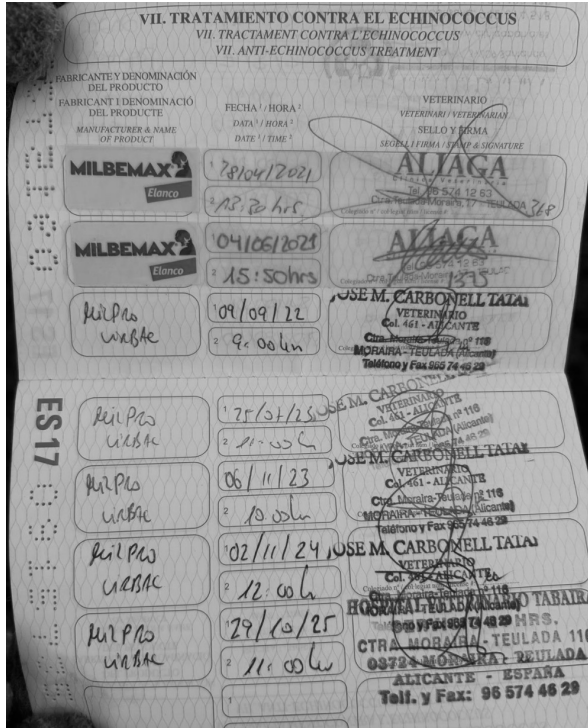 VII. TRATAMIENTO CONTRA EL ECHINOCOCCUS
VII. TRACTAMENT CONTRA L'ECHINOCOCCUS
VII. ANTI-ECHINOCOCCUS TREATMENT
FABRICANTE Y DENOMINACIÓN
DEL PRODUCTO
FABRICANT I DENOMINACIÓ
DEL PRODUCTE
MANUFACTURER & NAME
OF PRODUCT
FECHA 1 / HORA 2
DATA 1 / HORA 2
DATE 1 / TIME 2
VETERINARIO
VETERINARI / VETERINARIAN
SELLO Y FIRMA
SEGELL I FIRMA / STAMP & SIGNATURE
MILBEMAX
Elanco
1 28/04/2021
2 13:30 hrs
ALIAGA
Tel. 96 574 12 63
Ctra. Teulada-Moraira, 27 - TEULADA
368
MILBEMAX
Elanco
1 04/06/2021
2 15:50hrs
ALIAGA
1375
MilPro
VIRBAC
1 09/09/22
2 9:00hn
JOSE M. CARBONELL TATAY
VETERINARIO
Col. 461 - ALICANTE
Ctra. Moraira-Teulada nº 116
MORAIRA - TEULADA (Alicante)
Teléfono y Fax 965 74 46 29
ES17
MilPro
VIRBAC
1 25/07/23
2 11:00h
JOSE M. CARBONELL TATAY
VETERINARIO
Col. 461 - ALICANTE
Ctra. Moraira-Teulada nº 116
MORAIRA - TEULADA (Alicante)
MilPro
VIRBAC
06/11/23
2 10:00hn
JOSE M. CARBONELL TATAY
VETERINARIO
Col. 461 - ALICANTE
Ctra. Moraira-Teulada nº 116
MORAIRA - TEULADA (Alicante)
Teléfono y Fax 965 74 46 29
MilPro
VIRBAC
1 02/11/24
2 12:00h
JOSE M. CARBONELL TATAY
VETERINARIO
Col. 461 - ALICANTE
Ctra. Moraira-Teulada nº 116
MilPro
VIRBAC
1 29/10/25
2 11:00hn
HOSPITAL VETERINARIO TABAIRA
HRS.
CTRA MORAIRA - TEULADA 116
03724 MORAIRA - TEULADA
ALICANTE - ESPAÑA
Telf. y Fax: 96 574 46 29
1
2